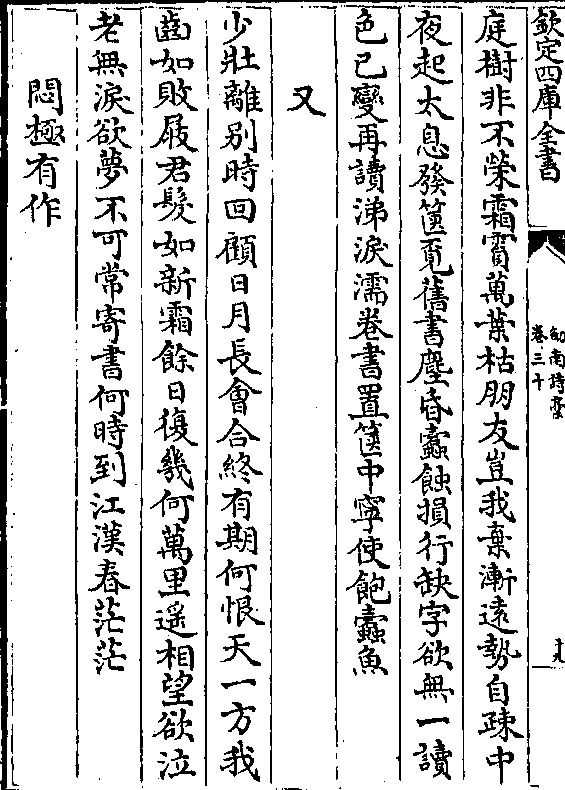 欽定四庫全書
劍南詩稾
卷三十
十九
庭樹非不榮霜賈萬葉枯朋友豈我棄漸遠勢自疎中
夜起太息發篋覓舊書塵昏蠹蝕損行缺字欲無一讀
色已變再讀涕淚濡卷書置篋中寧使飽蠹魚
又
少壯離别時回顧日月長會合終有期何恨天一方我
齒如敗屐君髮如新霜餘日復幾何萬里遥相望欲泣
老無淚欲夢不可常寄書何時到江漢春茫茫
悶極有作